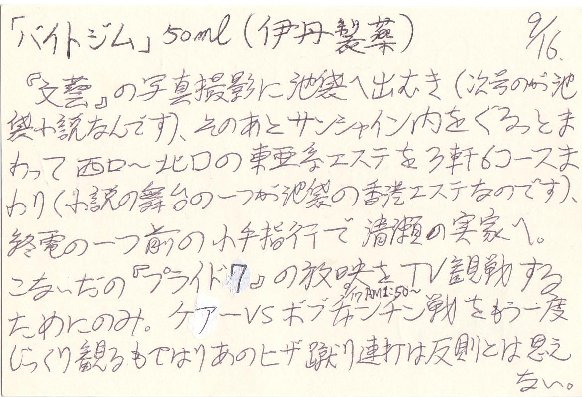 「バイトジム」50ml(伊丹製薬) 9/16.
『文藝』の写真撮影に池袋へ出むき(次号のが池
袋小説なんです)、そのあとサンシャイン内をぐるっとま
わって西口〜北口の東亜系エステを3軒6コースま
わり(小説の舞台の一つが池袋の香港エステなのです)、
終電の一つ前の小手指行で清瀬の実家へ。
こないだの『プライド7』の放映をTV観戦する
17 AM1:50〜
ためにのみ。ケアーVSボブチャンチン戦をもう一度
じっくり観るもやはりあのヒザ蹴り連打は反則とは思え
ない。